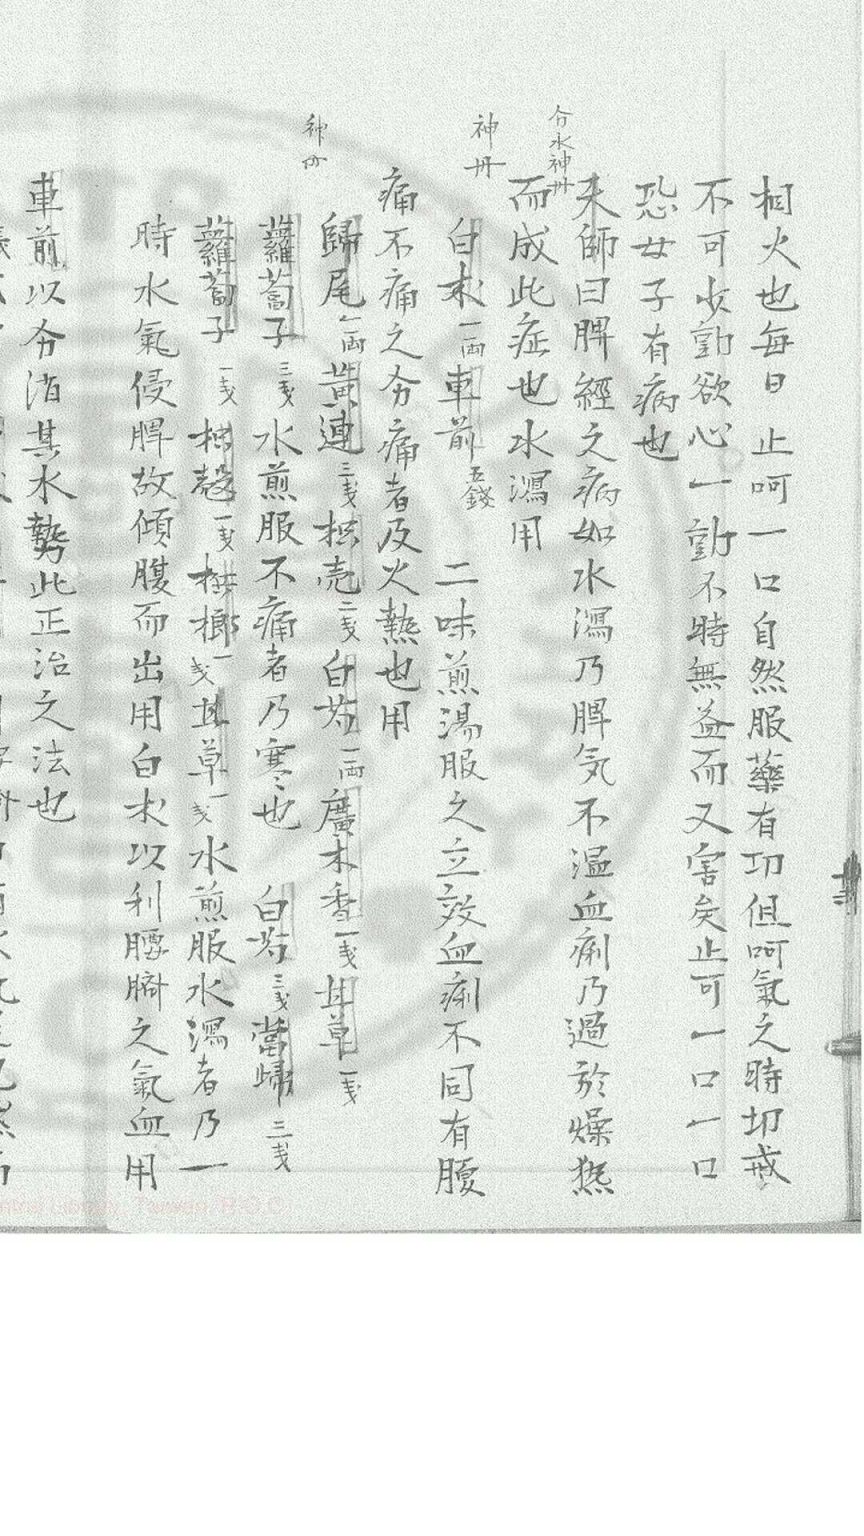 相火也每日止呵一口自然服藥有功但呵氣之時切戒
不可少動欲心一動不特無益而又害矣止可一口一口
恐女子有病也
天師曰脾經之病如水瀉乃脾気不溫血痢乃過於燥熱
分水神丹
而成此症也水瀉用
神丹
白朮一両車前五錢 二味煎湯服之立效血痢不同有腹
痛不痛之分痛者及火熱也用
神丹
歸尾一両黃連三戔枳壳二戔白芍一両廣木香一戔甘草一戔
蘿蔔子三戔水煎服不痛者乃寒也 白芍三戔當歸三戔
蘿蔔子一戔枳殼一戔檳榔一戔甘草一戔水煎服水瀉者乃一
時水氣侵脾故傾腹而出用白朮以利腰臍之氣血用
車前以分消其水勢此正治之法也